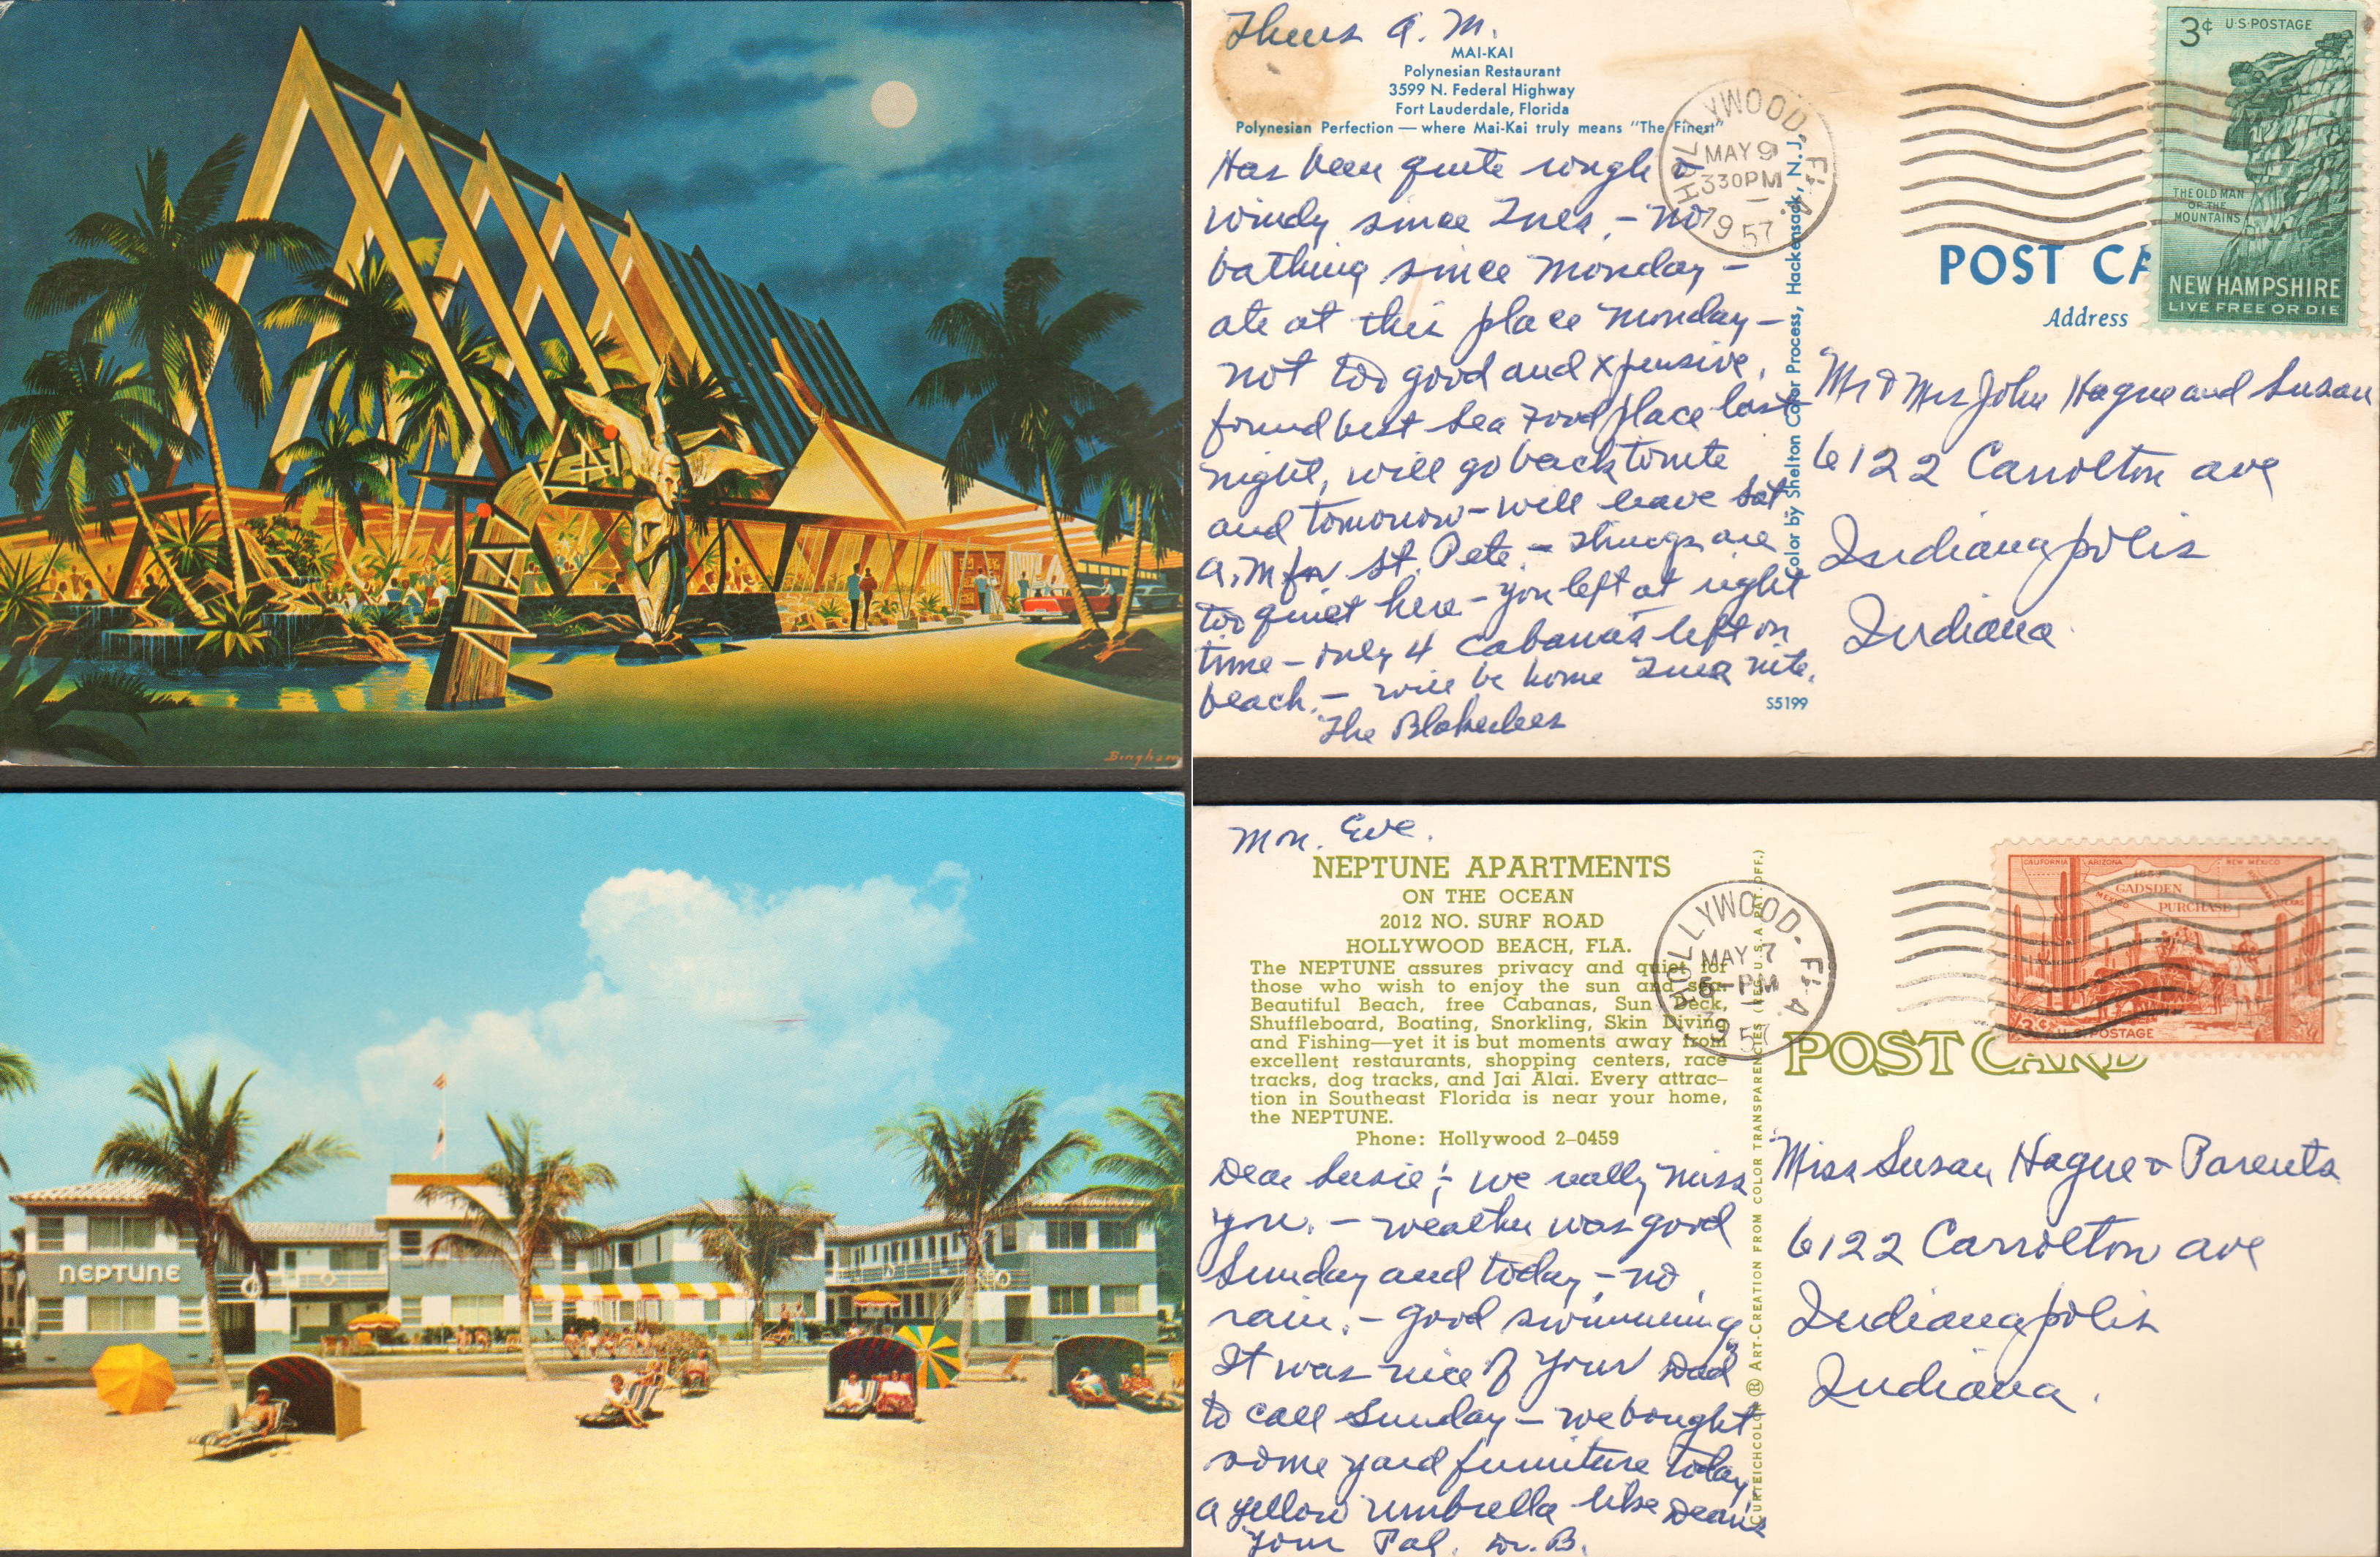 MAI-KAI
Bingham
Thurs A.M.
MAI-KAI
Polynesian Restaurant
3599 N. Federal Highway
Fort Lauderdale, Florida
Polynesian Perfection — where Mai-Kai truly means "The Finest"
Has been quite rough &
windy since Tues. – no
bathing since Monday –
ate at this place Monday –
not too good and xpensive,
found best sea food place last
night, will go back tonite
and tomorrow – will leave Sat
A.M for St. Pete. – Things are
too quiet here – you left at right
time – only 4 cabanas left on
beach. – will be home Tues nite.
The Blakeslees
S5199
Color by Shelton Color Process, Hackensack, N. J.
HOLLYWOOD, FLA.
MAY 9
330PM
1957
3¢ U.S. POSTAGE
THE OLD MAN
OF THE
MOUNTAINS
NEW HAMPSHIRE
LIVE FREE OR DIE
POST CA
Address
Mr & Mrs John Hague and Susan
6122 Carrolton ave
Indianapolis
Indiana
NEPTUNE
Mon. Eve.
NEPTUNE APARTMENTS
ON THE OCEAN
2012 NO. SURF ROAD
HOLLYWOOD BEACH, FLA.
The NEPTUNE assures privacy and quiet for
those who wish to enjoy the sun and sea.
Beautiful Beach, free Cabanas, Sun Deck,
Shuffleboard, Boating, Snorkling, Skin Diving
and Fishing—yet it is but moments away from
excellent restaurants, shopping centers, race
tracks, dog tracks, and Jai Alai. Every attrac–
tion in Southeast Florida is near your home,
the NEPTUNE.
Phone: Hollywood 2–0459
Dear Susie; – we really miss
you. – weather was good
Sunday and today – no
rain. – good swimming
It was nice of your Dad
to call Sunday – we bought
some yard furniture today
a yellow umbrella like Dean's
Your Pal. Dr. B.
CURTEICHCOLOR ® ART-CREATION FROM COLOR TRANSPARENCIES (REG. U.S.A. PAT. OFF.)
HOLLYWOOD, FLA.
MAY 7
6-PM
1957
CALIFORNIA ARIZONA NEW MEXICO
1853
GADSDEN
PURCHASE
MEXICO
TEXAS
3¢ U.S. POSTAGE
POST CARD
Miss Susan Hague & Parents
6122 Carrolton ave
Indianapolis
Indiana.